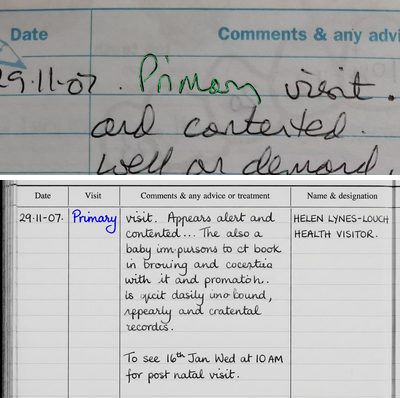 Date Comments & any advi
29.11.07. Primary visit.
and contented.
well on demand.
Date Visit Comments & any advice or treatment Name & designation
29.11-07. Primary visit. Appears alert and HELEN LYNES-LOUCH
contented... The also a HEALTH VISITOR.
baby im pursons to ct book
in browing and
with it and promatoh..
is qicit dasily ino bound,
appearly and cratental
recordis.
To see 16th Jan Wed at 10 AM
for post natal visit.